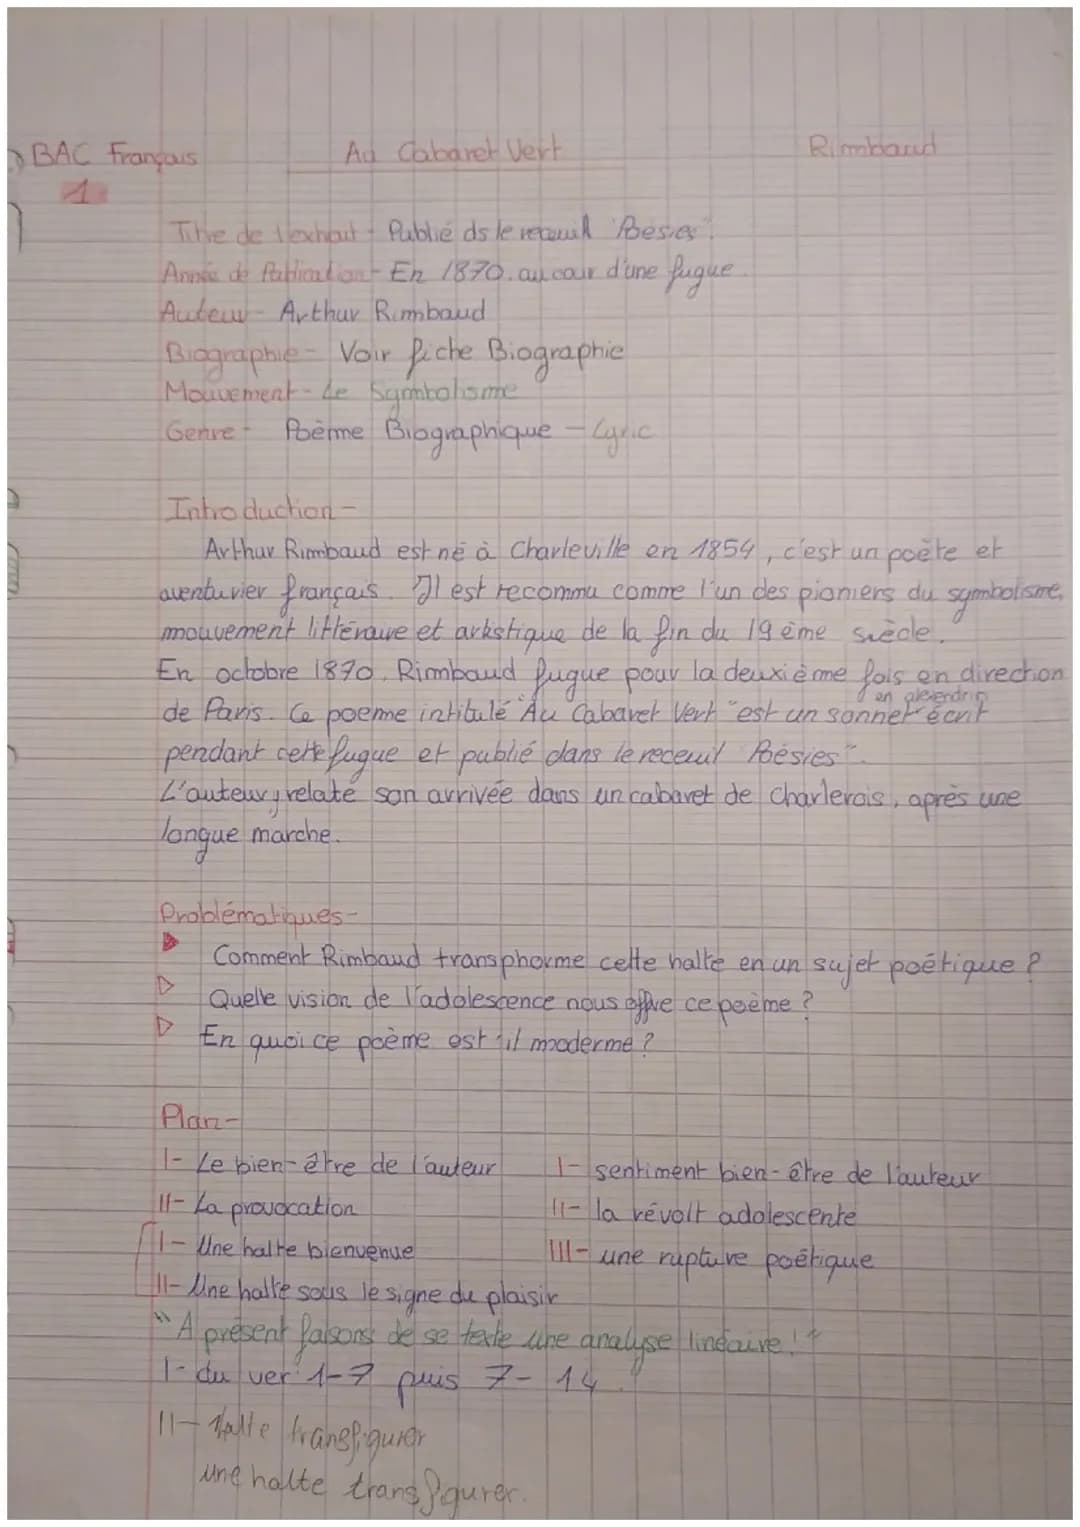 BAC Français Au Cabaret Vert Rimbaud
1
Titre de l'extrait - Publié ds le receuil "Poésies".
Année de Publication - En 1870. au cour d'une fugue.
Auteur - Arthur Rimbaud
Biographie - Voir fiche Biographie
Mouvement - Le Symbolisme
Genre - Poème Biographique - Lyric
Introduction -
Arthur Rimbaud est né à Charleville en 1854, c'est un poète et
aventurier français. Il est reconnu comme l'un des pioniers du symbolisme,
mouvement littéraire et artistique de la fin du 19 ème siècle.
En octobre 1870, Rimbaud fugue pour la deuxième fois en direction
en alexandrin
de Paris. Ce poeme intitulé "Au Cabaret Vert" est un sonnet écrit
pendant cette fugue et publié dans le receuil "Poésies".
L'auteur y relate son arrivée dans un cabaret de Charlerois, après une
longue marche.
Problématiques -
Comment Rimbaud transphorme cette halte en un sujet poétique ?
Quelle vision de l'adolescence nous offre ce poème ?
En quoi ce poème est il moderme ?
Plan -
I - Le bien-être de l'auteur I - sentiment bien-être de l'auteur
II - La provocation II - la révolt adolescente
I - Une halte bienvenue III - une rupture poétique
II - Une halte sous le signe du plaisir
"A présent faisons de se texte une analyse linéaire !"
I - du ver 1-7 puis 7-14.
II - Halte transfigurer
une halte transfigurer.